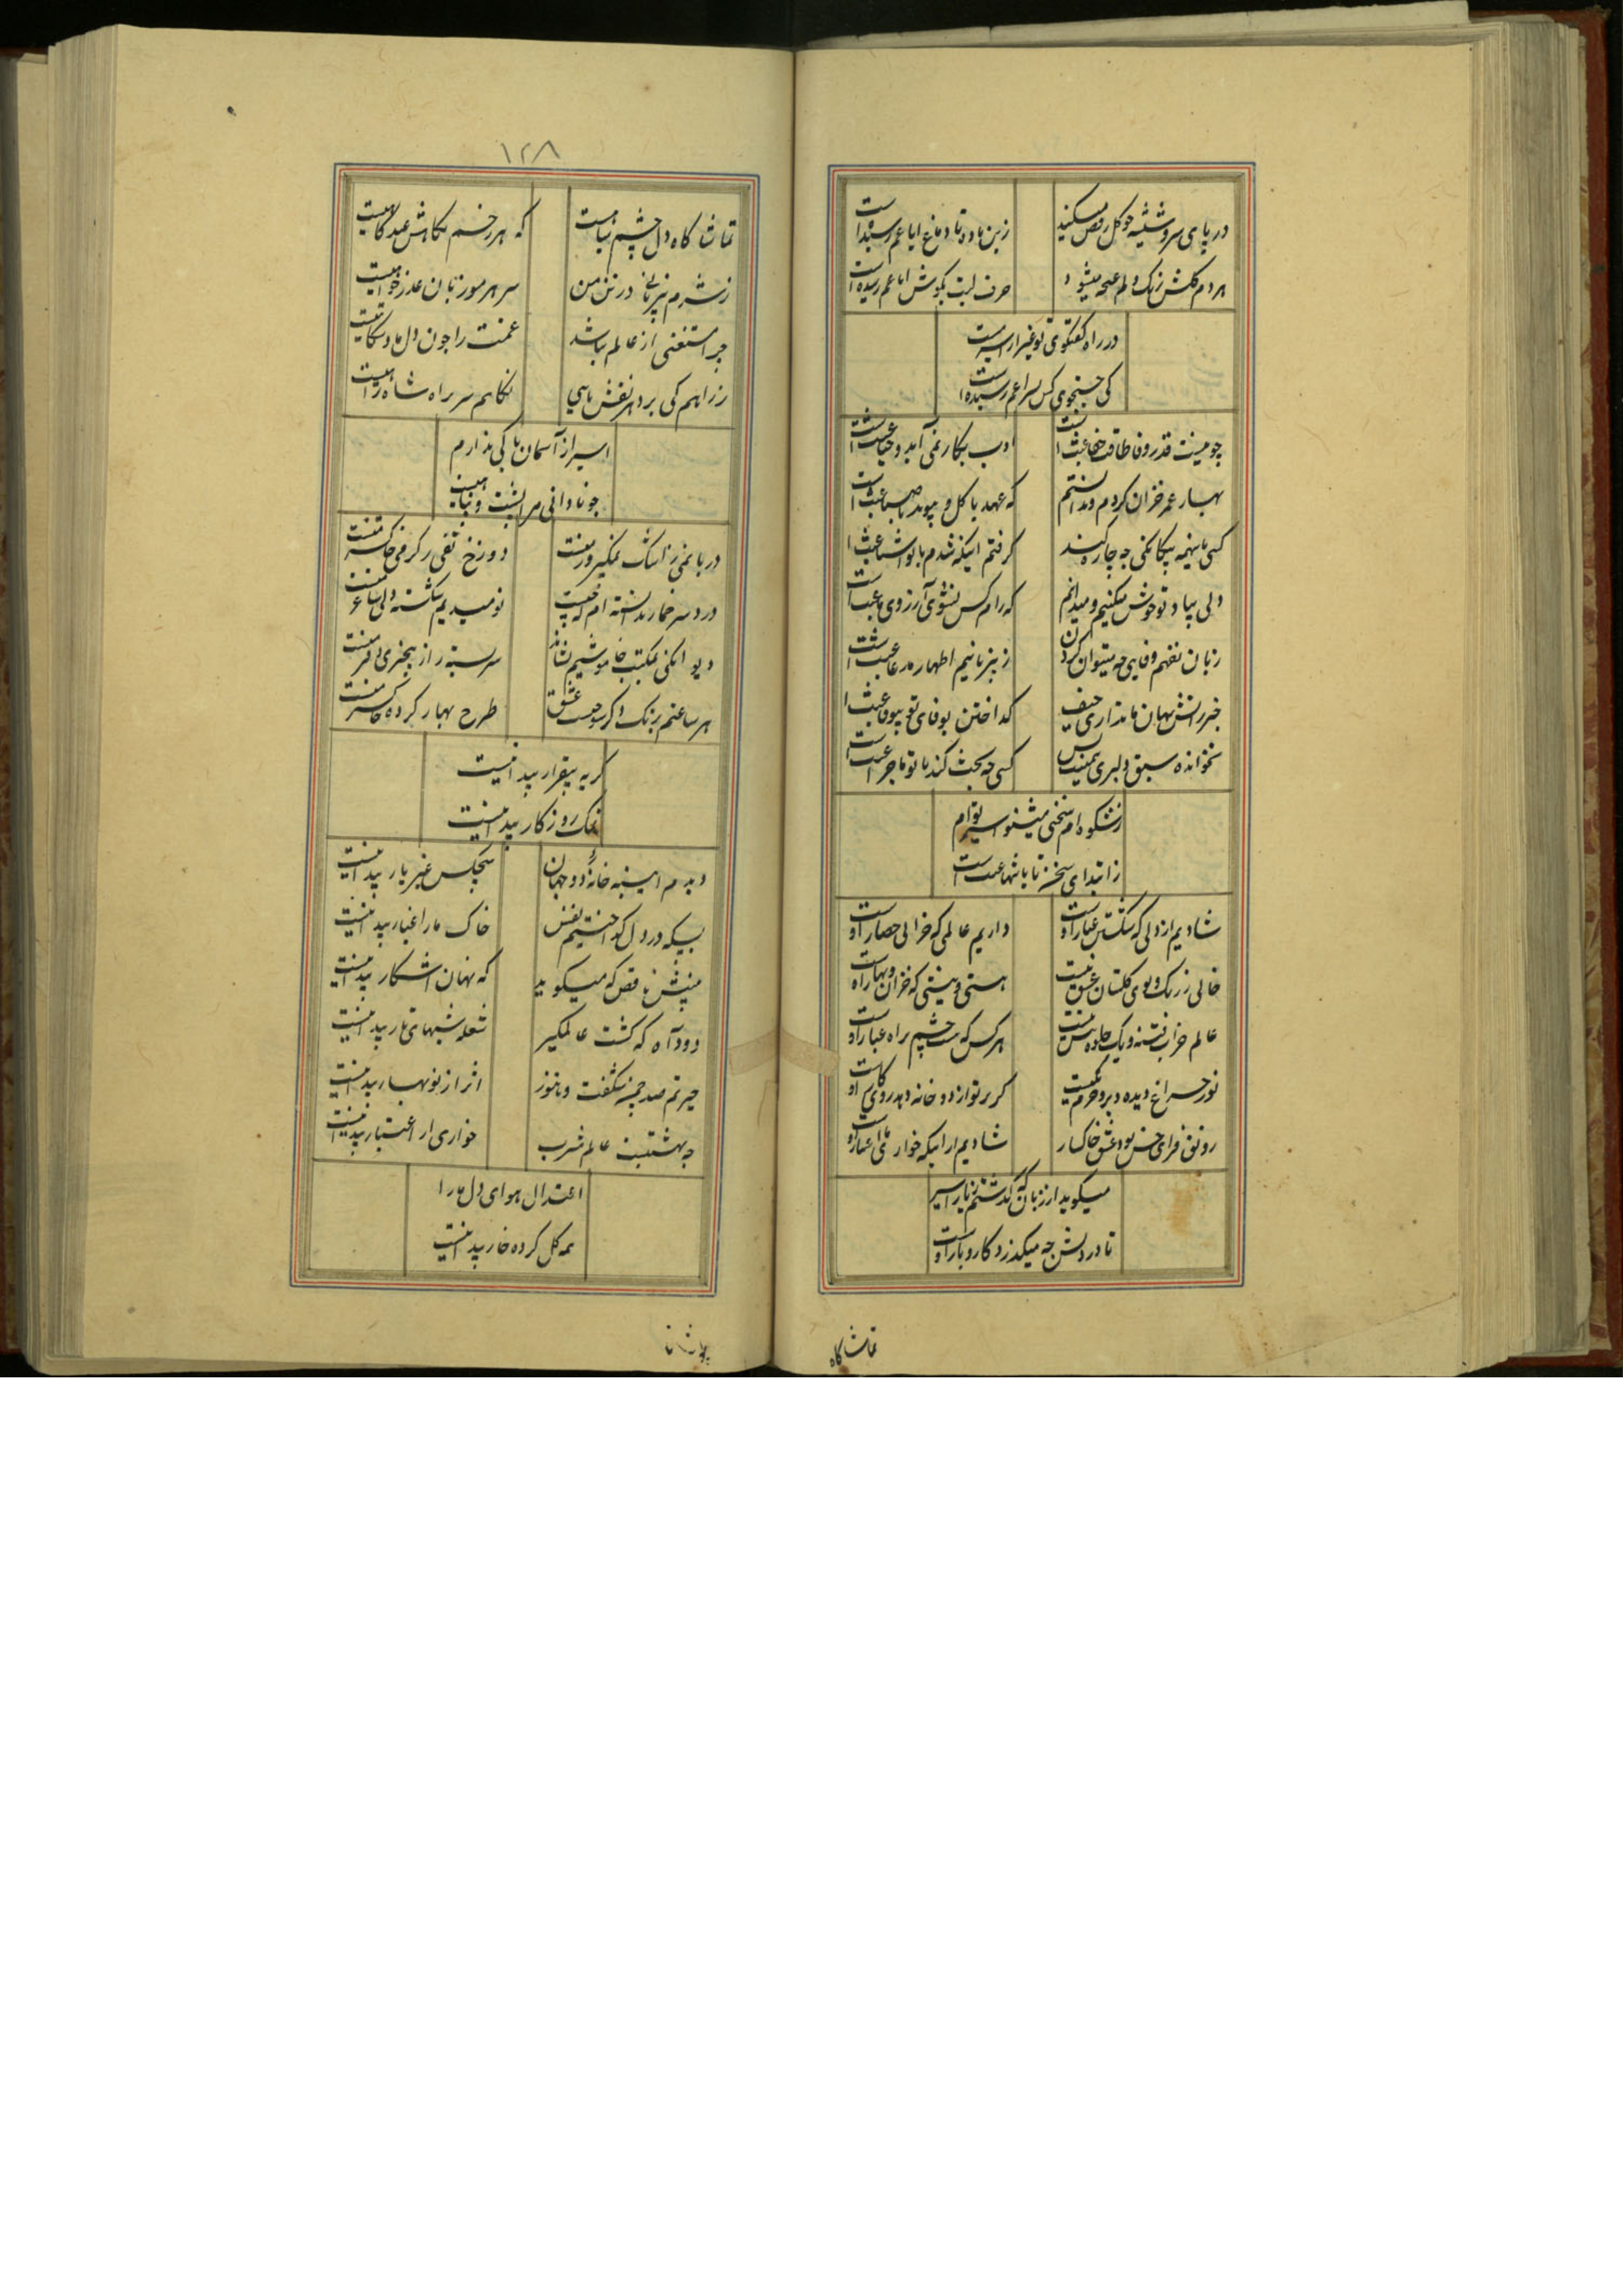 در پای سرو شیشه چو گل رقص میکنید
زین باده تا دماغ ایاغم رسیده است
هر دم گلش ز رنگ دلم غنچه میشود
حرف لبت بگوش ایاغم رسیده است
در راه گفتگوی تو غیر از اسیر نیست
کی جستجوی کس بسراغم رسیده است
چو نیست قدر وفا طاقت جفا عبث است
ادب بکار نمی آید و حیا عبث است
بهار عمر خزان کردم و ندانستم
که عهد با گل و پیوند با صبا عبث است
کسی باینهمه بیگانگی چه چاره کند
گرفتم اینکه شدم با تو آشنا عبث است
دلی بیاد تو خوش میکنیم و میدانم
که رام کس نشوی آرزوی ما عبث است
زبان نفهم وفایی چه میتوان کردن
ز بیزبانیم اظهار مدعا عبث است
خبر ز آتش پنهان ما نداری حیف
گداختن بوفای تو بیوفا عبث است
نخوانده سبق دلبری همینت بس
کسی چه بحث کند با تو ماجرا عبث است
ز شکوه ام سخنی میشنو اسیر توام
ز ابتدای سخن تا بانتها عبث است
شادیم از دلی که شکستن عیار اوست
داریم عالمی که خرابی حصار اوست
خالی ز رنگ و بوی گلستان عشق نیست
هستی و نیستی که خزان و بهار اوست
عالم خراب فتنه و یک جلوه بیش نیست
هر کس که هست چشم براه غبار اوست
نور چراغ دیده دیر و حرم یکیست
گر پرتو از دو خانه دهد روی کار اوست
رونق فزای حسن بود عشق خاکسار
شادیم از اینکه خواری ما اعتبار اوست
میگوید از زبان که گذشتم ز یار اسیر
تا در دلش چه میگذرد کار و بار اوست
تماشاگاه
۱۲۸
تماشا گاه دل چشم سیاهیست
که هر زخم نگاهش عیدگاهیست
ز شرم بیزبانی در تن من
سر هر مو زبان عذر خواهیست
چرا مستغنی از عالم نباشد
غمت را چون دل ما دستگاهیست
ز راهم کی برد هر نقش پایی
نگاهم بر سر راه شاهراهیست
اسیر از آسمان باکی ندارم
چو نادانی مرا پشت و پناهیست
دریا نمی ز اشک نمکپرور منست
دوزخ تفی ز گرمی خاکستر منست
درد سر خمار ندانسته ام که چیست
نومیدیم شکسته دلی ساغر منست
دیوانگی بمکتب خاموشیم نشاند
سربسته راز بیخبری دفتر منست
هر ساعتم برنگ دگر سوخت عشق
طرح بهار کرده خاکستر منست
گریه بیقرار پیدا نیست
نمک روزگار پیدا نیست
دیدم آیینه خانه دو جهان
هیچکس غیر یار پیدا نیست
بسکه در دل گداختیم نفس
خاک ما را غبار پیدا نیست
بینش ناقص که میگوید
که نهان آشکار پیدا نیست
دود آه که گشت عالمگیر
شعله شبهای تار پیدا نیست
حیرتم صد چمن شکفت و هنوز
اثر از نوبهار پیدا نیست
چه بهشتیست عالم مشرب
خواری از اعتبار پیدا نیست
اعتدال هوای دل ما را
همه گل کرده خار پیدا نیست